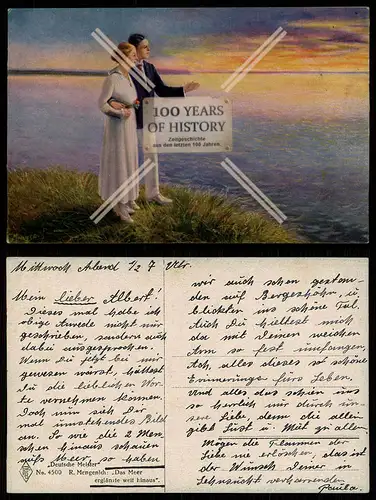 100 YEARS
OF HISTORY
Zeitgeschichte
aus den letzten 100 Jahren
Mittwoch Abend 1/2 7 Uhr.
Mein lieber Albert!
Dieses mal habe ich
obige Anrede nicht nur
geschrieben, sondern auch
dabei ausgesprochen.
Wenn Du jetzt bei mir
gewesen wärst, hättest
Du die lieblichen Wor-
te vernehmen können.
Doch nun sieh Dir
mal umstehendes Bild
an. So wie die 2 Men-
schen hinaus schauen
aufs Meer, so haben
"Deutsche Meister"
No. 4500 R. Mengenich: „Das Meer
erglänzte weit hinaus".
wir auch schon gestan-
den auf Bergeshöhn, u.
blickten ins schöne Tal,
Auch Du hieltest mich
da mit Deinen weichen
Arm so fest umfangen,
Ach, alles dieses ist schöne
Erinnerung fürs Leben.
Und alles das schön uns
so herrlich nur durch uns're
Liebe, denn die allein
gibt Lust u. Mut zu allem.
Mögen die Flammen der
Liebe nie erlöschen, das ist
der Wunsch Deiner in
Sehnsucht verharrenden
Paula.